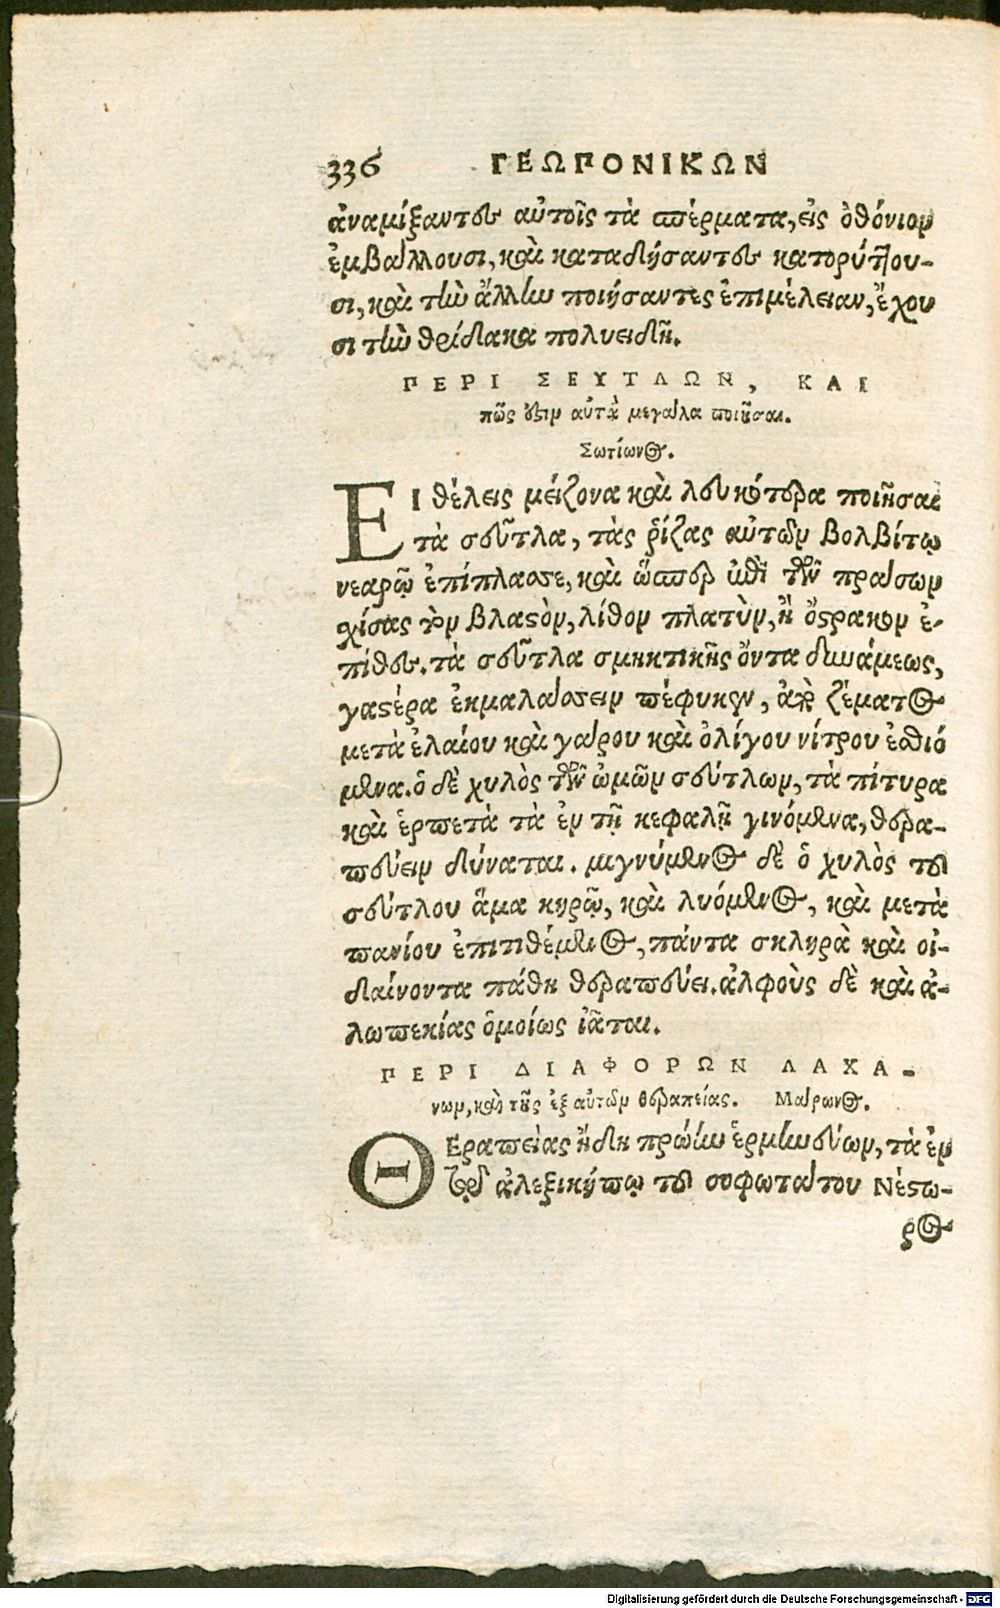 336 ΓΕΩΠΟΝΙΚΩΝ
ἀναμίξαντες αὐτοῖς τὰ σπέρματα, εἰς ὀθόνιον
ἐμβάλλουσι, καὶ καταδήσαντες κατορύττου-
σι, καὶ τὴν ἄλλην ποιήσαντες ἐπιμέλειαν, ἔχου
σι τὴν θρίδακα πολυειδῆ.
ΠΕΡΙ ΣΕΥΤΛΩΝ, ΚΑΙ
πῶς ἔστιν αὐτὰ μεγάλα ποιῆσαι.
Σωτίωνος.
ΕΙ θέλεις μείζονα καὶ λευκότερα ποιῆσαι
τὰ σεῦτλα, τὰς ῥίζας αὐτῶν βολβίτῳ
νεαρῷ ἐπίπλασσε, καὶ ὥσπερ ἐπὶ τῶν πράσων
χίσας τὸν βλαστὸν, λίθον πλατὺν, ἢ ὄστρακον ἐ-
πίθες. τὰ σεῦτλα σμηκτικῆς ὄντα δυνάμεως,
γαστέρα ἐκμαλάσσειν πέφυκεν, ἀπὸ ζέματος
μετὰ ἐλαίου καὶ γάρου καὶ ὀλίγου νίτρου ἐσθιό
μενα. ὁ δὲ χυλὸς τῶν ὠμῶν σεύτλων, τὰ πίτυρα
καὶ ἑρπετὰ τὰ ἐν τῇ κεφαλῇ γινόμενα, θερα-
πεύειν δύναται. μιγνύμενος δὲ ὁ χυλὸς τοῦ
σεύτλου ἅμα κηρῷ, καὶ λυόμενος, καὶ μετὰ
πανίου ἐπιτιθέμενος, πάντα σκληρὰ καὶ οἰ-
δαίνοντα πάθη θεραπεύει. ἀλφοὺς δὲ καὶ ἀ-
λωπεκίας ὁμοίως ἰᾶται.
ΠΕΡΙ ΔΙΑΦΟΡΩΝ ΛΑΧΑ-
νων, καὶ τῆς ἐξ αὐτῶν θεραπείας. Μάρωνος.
ΘΕραπείας ἤδη πρώην ἑρμηνεύων, τὰ ἐν
τῷ ἀλεξικήπῳ τοῦ σοφωτάτου Νέστω-
ρος
Digitalisierung gefördert durch die Deutsche Forschungsgemeinschaft - DFG